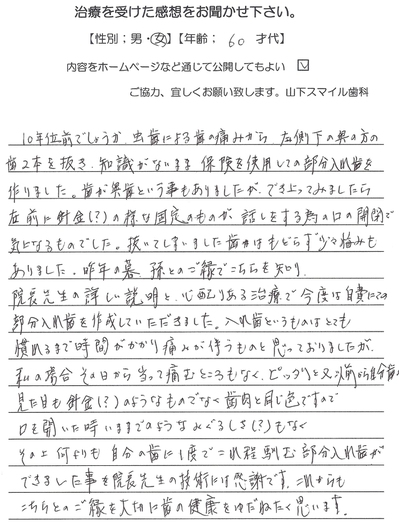 治療を受けた感想をお聞かせ下さい。
【性別；男・女】【年齢； 60 才代】
内容をホームページなど通じて公開してもよい ☑
ご協力、宜しくお願い致します。山下スマイル歯科
10年位前でしょうか 虫歯による歯の痛みから 左側下の奥の方の
歯2本を抜き、知識がないまま 保険を使用しての部分入れ歯を
作りました。歯が奥歯という事もありましたが、でき上ってみましたら
左前に針金(?)の様な固定のものが 話しをする為の口の開閉で
気になるものでした。抜いてしまいました歯はもどらず少々悩みも
ありました。昨年の暮 孫とのご縁でこちらを知り、
院長先生の詳しい説明と、心配りある治療で今度は自費にての
部分入れ歯を作成していただきました。入れ歯というものはとても
慣れるまで時間がかかり痛みが伴うものと思っておりましたが、
私の場合 その日から当って痛むところもなく、ピッタリと
見た目も針金(?)のようなものでなく歯肉と同じ色ですので
口を開いた時いままでのような見ぐるしさ(?)もなく
その上 何よりも 自分の歯に1度でこれ程 馴む 部分入れ歯が
できました事を院長先生の技術には感謝です。これからも
こちらとのご縁を大切に歯の健康をゆだねたく思います。